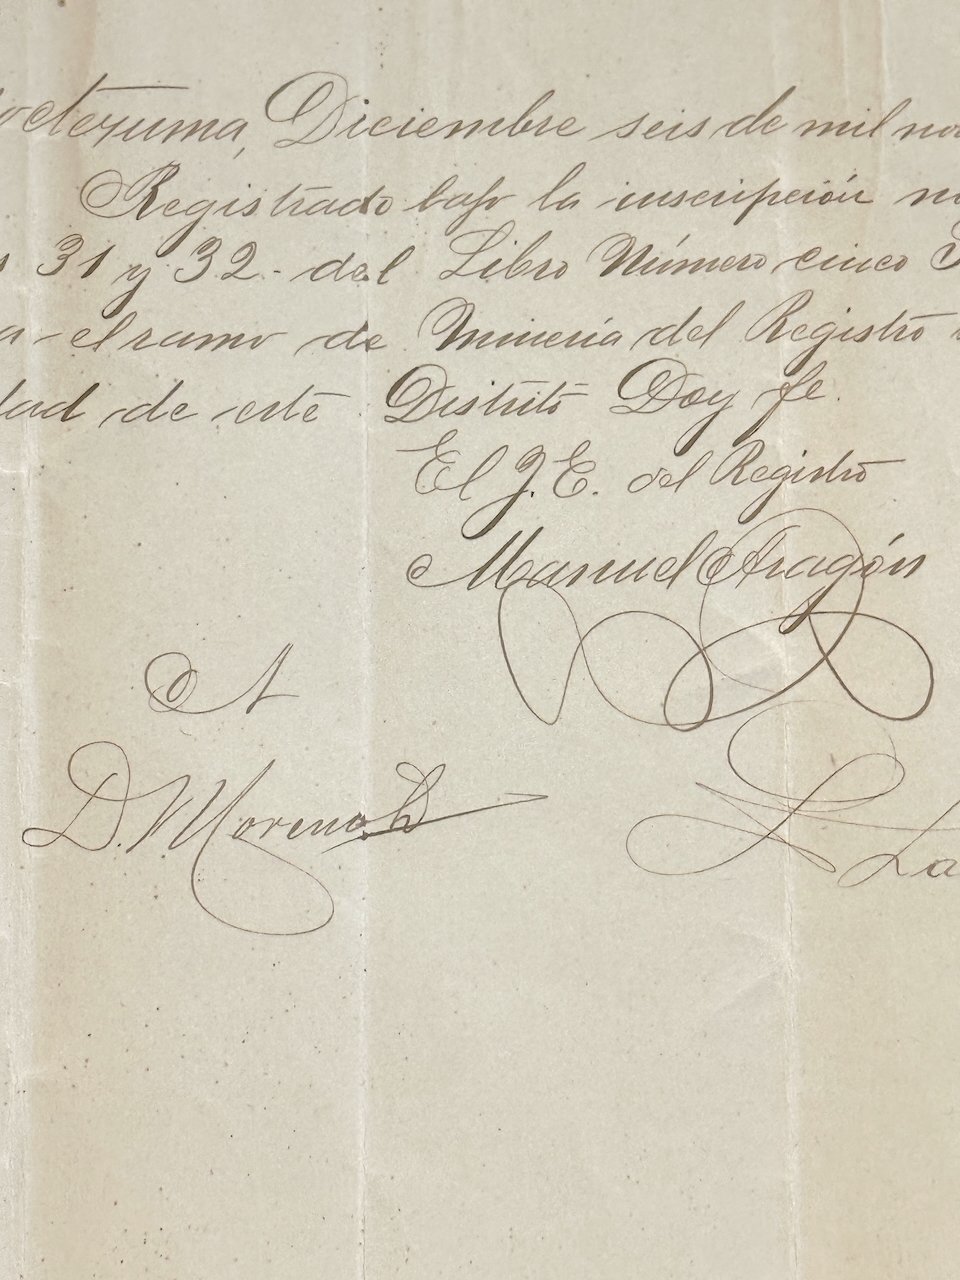 octezuma, Diciembre seis de mil nov
Registrado bajo la inscripción n
31 y 32 - del Libro Número cinco
a el ramo de Minería del Registro
dad de este Distrito Doy fe.
El J. E. del Registro
Manuel Aragón
A
D. Moreno
La